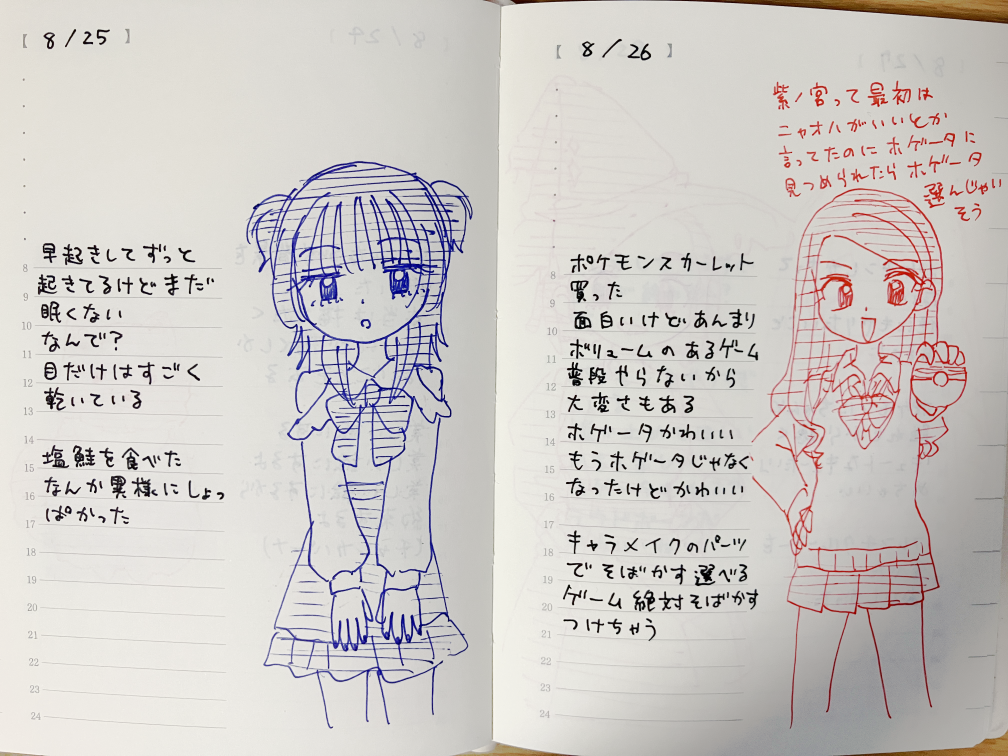 【 8/25 】
早起きしてずっと
起きてるけどまだ
眠くない
なんで?
目だけはすごく
乾いている
塩鮭を食べた
なんか異様にしょっ
ぱかった
8
9
10
11
12
13
14
15
16
17
18
19
20
21
22
23
24
【 8/26 】
紫ノ宮って最初は
ニャオハがいいとか
言ってたのにホゲータに
見つめられたらホゲータ
選んじゃい
そう
ポケモンスカーレット
買った
面白いけどあんまり
ボリュームのあるゲーム
普段やらないから
大変さもある
ホゲータかわいい
もうホゲータじゃなく
なったけどかわいい
キャラメイクのパーツ
でそばかす選べる
ゲーム絶対そばかす
つけちゃう
8
9
10
11
12
13
14
15
16
17
18
19
20
21
22
23
24